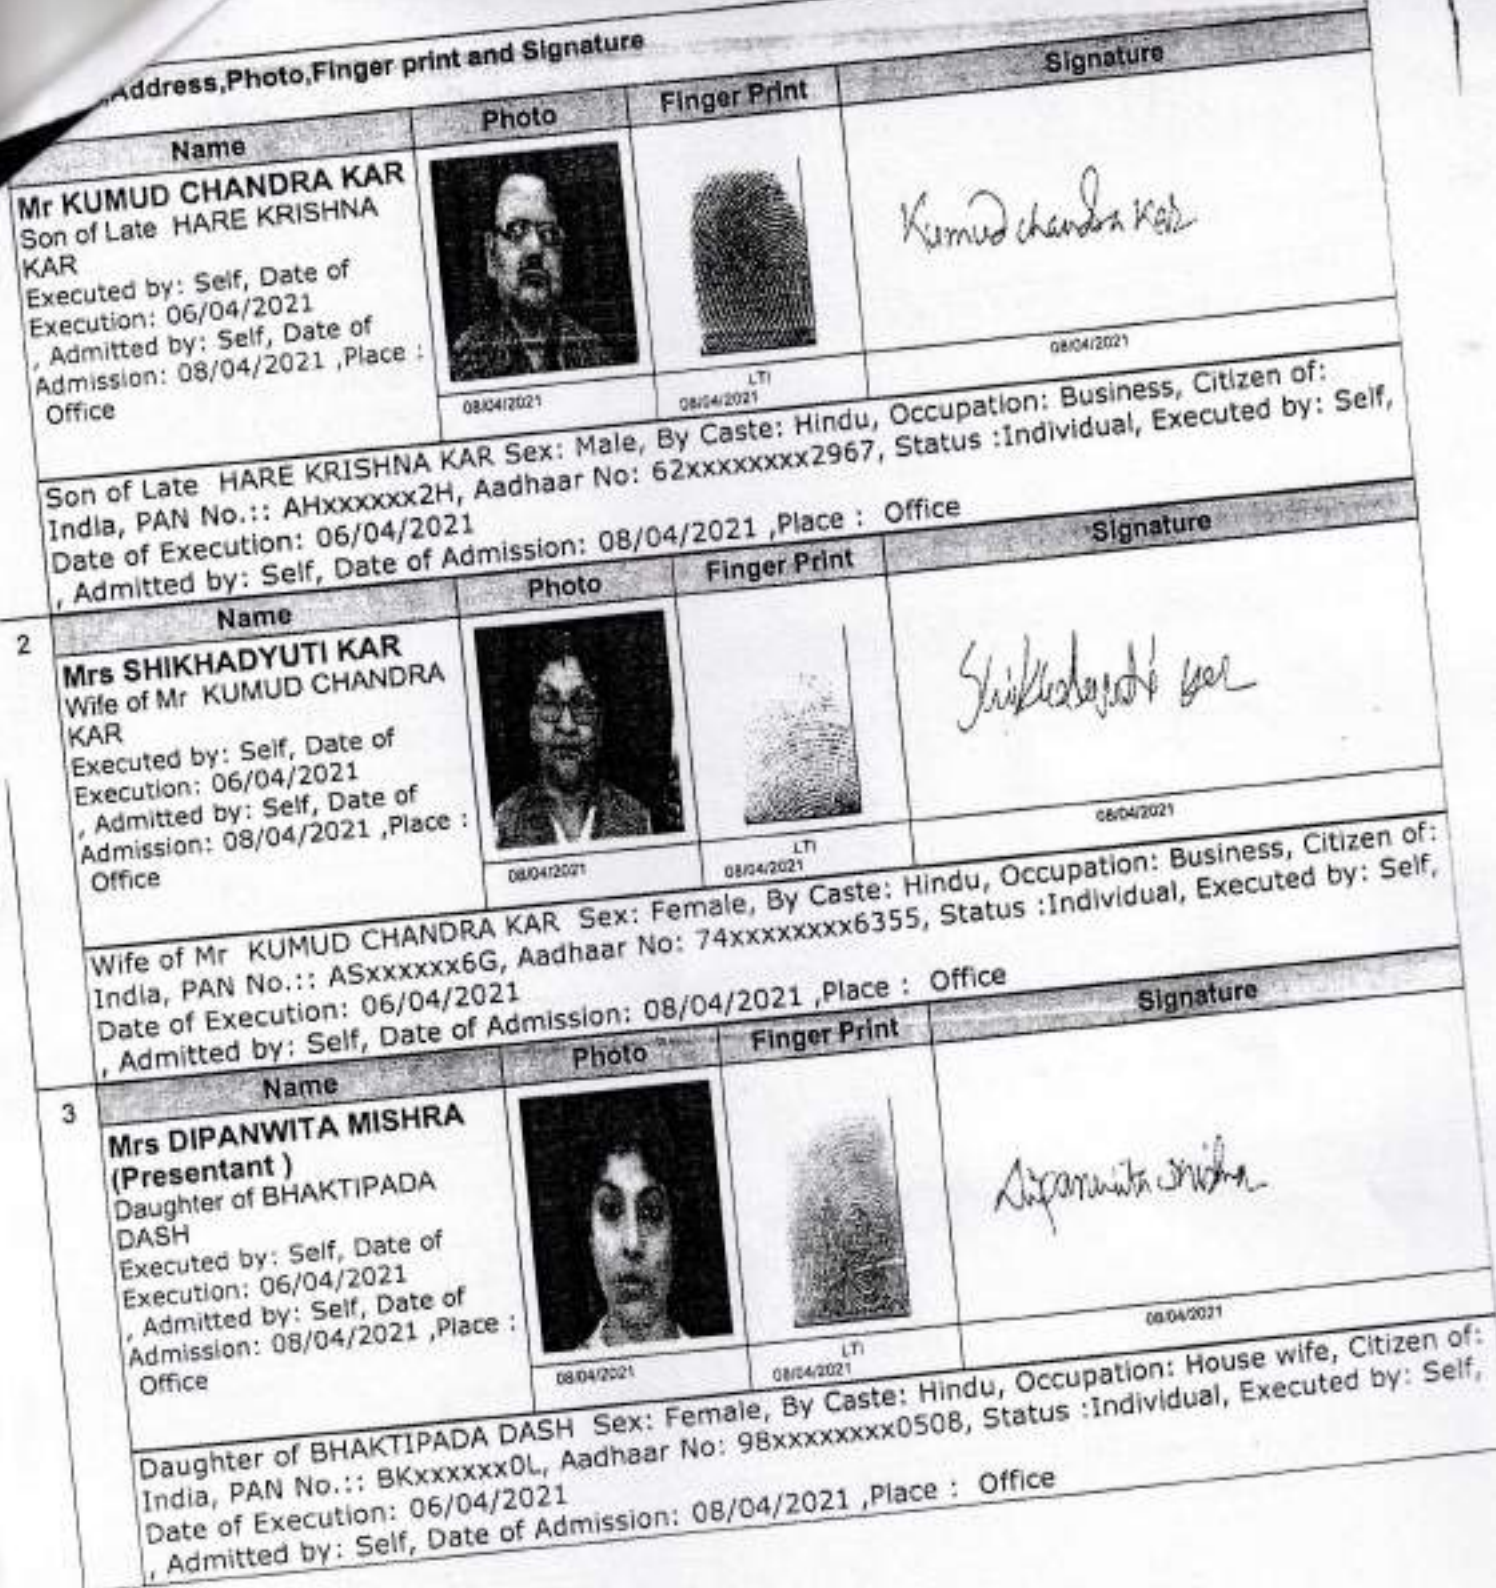 ,Address,Photo,Finger print and Signature
Name Photo Finger Print Signature
Mr KUMUD CHANDRA KAR
Son of Late HARE KRISHNA
KAR
Executed by: Self, Date of
Execution: 06/04/2021
, Admitted by: Self, Date of
Admission: 08/04/2021 ,Place :
Office
Kumud chandra Kar
08/04/2021
LTI
08/04/2021
08/04/2021
Son of Late HARE KRISHNA KAR Sex: Male, By Caste: Hindu, Occupation: Business, Citizen of:
India, PAN No.:: AHxxxxxx2H, Aadhaar No: 62xxxxxxxx2967, Status :Individual, Executed by: Self,
Date of Execution: 06/04/2021
, Admitted by: Self, Date of Admission: 08/04/2021 ,Place : Office
2
Name Photo Finger Print Signature
Mrs SHIKHADYUTI KAR
Wife of Mr KUMUD CHANDRA
KAR
Executed by: Self, Date of
Execution: 06/04/2021
, Admitted by: Self, Date of
Admission: 08/04/2021 ,Place :
Office
Shikhadyuti kar
08/04/2021
LTI
08/04/2021
08/04/2021
Wife of Mr KUMUD CHANDRA KAR Sex: Female, By Caste: Hindu, Occupation: Business, Citizen of:
India, PAN No.:: ASxxxxxx6G, Aadhaar No: 74xxxxxxxx6355, Status :Individual, Executed by: Self,
Date of Execution: 06/04/2021
, Admitted by: Self, Date of Admission: 08/04/2021 ,Place : Office
3
Name Photo Finger Print Signature
Mrs DIPANWITA MISHRA
(Presentant )
Daughter of BHAKTIPADA
DASH
Executed by: Self, Date of
Execution: 06/04/2021
, Admitted by: Self, Date of
Admission: 08/04/2021 ,Place :
Office
Dipanwita Mishra
08/04/2021
LTI
08/04/2021
08/04/2021
Daughter of BHAKTIPADA DASH Sex: Female, By Caste: Hindu, Occupation: House wife, Citizen of:
India, PAN No.:: BKxxxxxx0L, Aadhaar No: 98xxxxxxxx0508, Status :Individual, Executed by: Self,
Date of Execution: 06/04/2021
, Admitted by: Self, Date of Admission: 08/04/2021 ,Place : Office